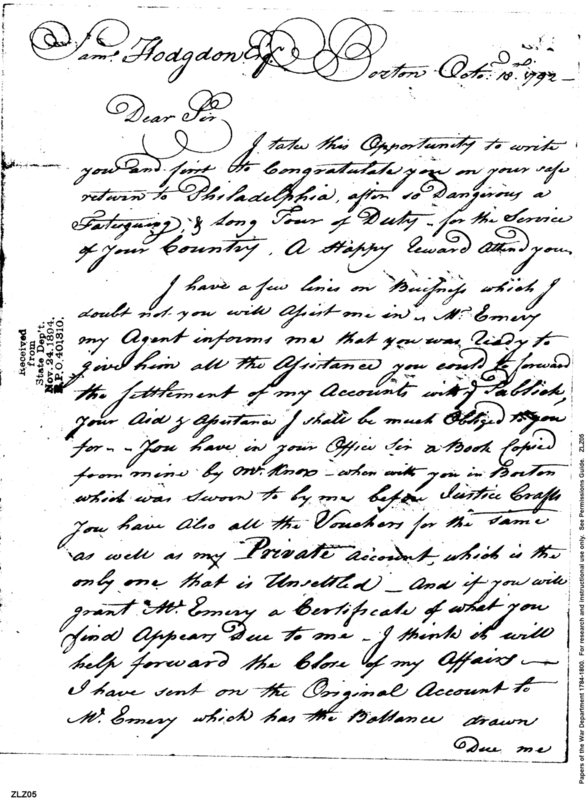 Saml. Hodgdon Esqr. Boston Octo. 18th 1792
Dear Sir
I take this Opportunity to write
you and first to Congratulate you on your safe
return to Philadelphia, after so Dangerous a
Fatergueing, & Long Tour of Duty - for the Service
of your Country, A Happy Reward Attend you
I have a few lines on Buisness which I
doubt not you will Assist me in - Mr. Emery
my Agent informs me that you was Ready to
give him all the Assistance you could to forward
the Settlement of my Accounts with ye Publick,
your Aid & Assistance I shall be much Obliged to you
for - - You have in your Office Sir a Book Copied
from mine by Mr. Knox - when with you in Boston
which was Sworn to by me before Justice Crafts
You have Also all the Vouchers for the same
as well as my Private Account, which is the
only one that is Unsettled - And if you will
grant Mr. Emery a Certificate of what you
find Appears Due to me - I think it will
help forward the Close of my Affairs -
I have sent on the Original Account to
Mr. Emery which has the Ballance drawn
Due me
Received
from
State Dep't.
Nov. 24. 1894.
R.P.O. 401310.
Papers of the War Department 1784-1800. For research and instructional use only. See Permissions Guide. ZLZ05
ZLZ05